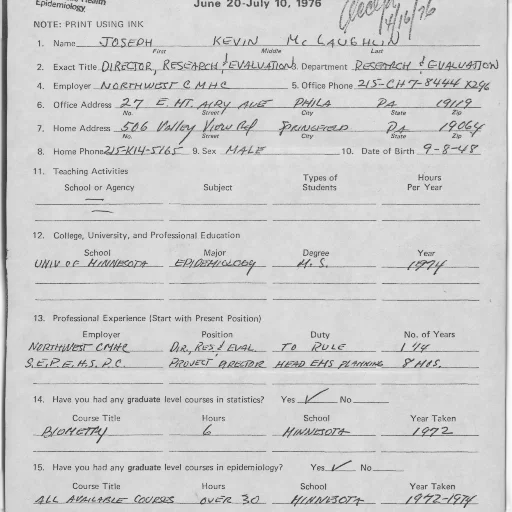 Health
Epidemiology
June 20-July 10, 1976
4/16/76
NOTE: PRINT USING INK
1. Name JOSEPH KEVIN McLAUGHLIN
First Middle Last
2. Exact Title DIRECTOR, RESEARCH & EVALUATION 3. Department RESEARCH & EVALUATION
4. Employer NORTHWEST CMHC 5. Office Phone 215-CH7-8444 X296
6. Office Address 27 E. MT. AIRY AVE PHILA PA 19119
No. Street City State Zip
7. Home Address 506 Valley View Rd SPRINGFIELD PA 19064
No. Street City State Zip
8. Home Phone 215-KI4-5165 9. Sex MALE 10. Date of Birth 9-8-48
11. Teaching Activities
School or Agency Subject Types of Students Hours Per Year
12. College, University, and Professional Education
School Major Degree Year
UNIV OF MINNESOTA EPIDEMIOLOGY M.S. 1974
13. Professional Experience (Start with Present Position)
Employer Position Duty No. of Years
NORTHWEST CMHC DIR, RES & EVAL. TO RULE 1 1/4
S.E.P.E.H.S.P.C. PROJECT DIRECTOR HEAD EHS PLANNING 8 MOS.
14. Have you had any graduate level courses in statistics? Yes ✓ No
Course Title Hours School Year Taken
BIOMETRY 6 MINNESOTA 1972
15. Have you had any graduate level courses in epidemiology? Yes ✓ No
Course Title Hours School Year Taken
ALL AVAILABLE COURSES OVER 30 MINNESOTA 1972-1974